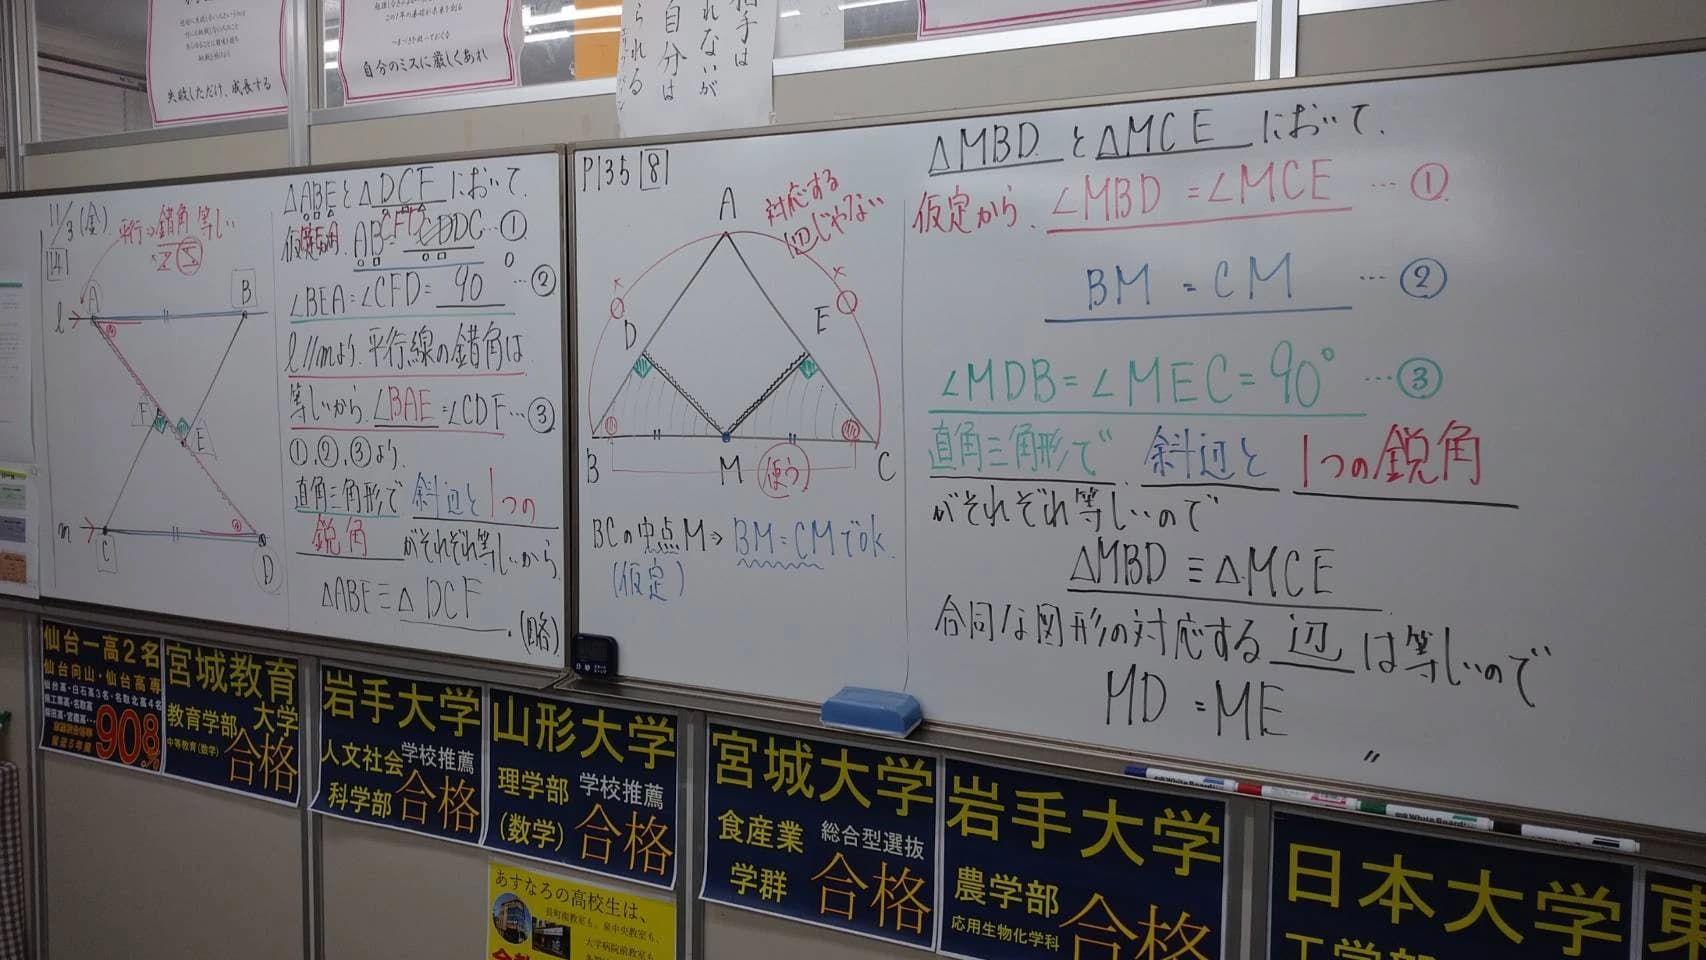 失敗しただけ、成長する
自分のミスに厳しくあれ
相手は
れないが
自分は
られる
11/3(金)
平行⇒錯角等しい
14
l
A
B
F
E
m
C
D
△ABEと△DCFにおいて、
仮定から、AB=DC…①
∠BEA=∠CFD=90°…②
l//mより、平行線の錯角は
等しいから、∠BAE=∠CDF…③
①,②,③より、
直角三角形で斜辺と1つの
鋭角がそれぞれ等しいから、
△ABE≡△DCF
(略)
P135 8
対応する
辺じゃない
A
D
E
B
M
C
使う
BCの中点M⇒BM=CMでok.
(仮定)
△MBDと△MCEにおいて、
仮定から、∠MBD=∠MCE…①
BM=CM…②
∠MDB=∠MEC=90°…③
直角三角形で斜辺と1つの鋭角
がそれぞれ等しいので
△MBD≡△MCE
合同な図形の対応する辺は等しいので
MD=ME
〃
仙台一高2名
仙台向山・仙台高専
908
宮城教育大学
教育学部
中等教育(数学)
合格
岩手大学
人文社会科学部
学校推薦
合格
山形大学
理学部(数学)
学校推薦
合格
宮城大学
食産業学群
総合型選抜
合格
岩手大学
農学部
応用生物化学科
合格
日本大学
工学部
東
あすなろの高校生は、
長町南教室も、泉中央教室も、
大学病院前教室も、
WhiteBoard